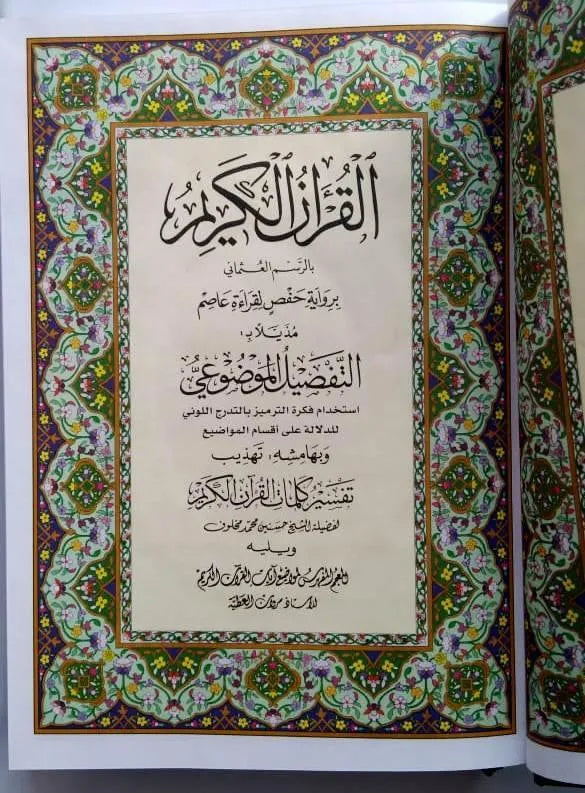 القرآن الكريم
بالرسم العثماني
برواية حفص لقراءة عاصم
مذيلا بـ:
التفصيل الموضوعي
استخدام فكرة الترميز بالتدرج اللوني
للدلالة على أقسام المواضيع
وبهامشه: تهذيب
تفسير كلمات القرآن الكريم
لفضيلة الشيخ حسنين محمد مخلوف
ويليه
المعجم المفهرس لمواضيع آيات القرآن الكريم
للأستاذ مروان العطية